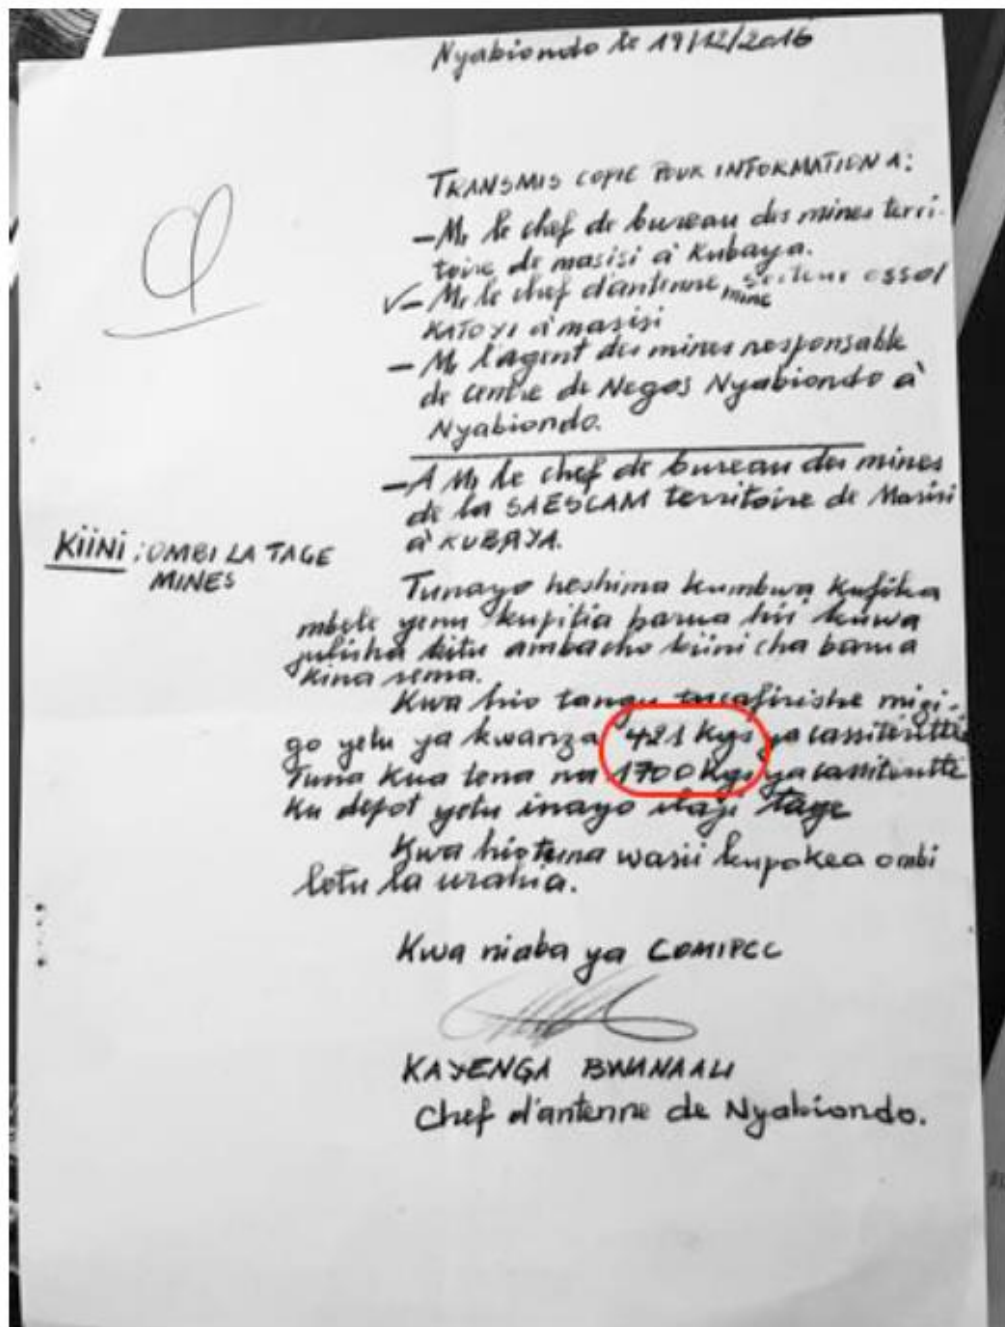 Nyabiondo le 19/12/2016
TRANSMIS COPIE POUR INFORMATION A:
- Mr le chef de bureau des mines terri-
toire de masisi à Kubaya.
- Mr le chef d'antenne mine secteur ossol
KATOYI à masisi
- Mr l'agent des mines responsable
de centre de Negos Nyabiondo à
Nyabiondo.
- A Mr le chef de bureau des mines
de la SAESCAM territoire de Masisi
à KUBAYA.
KiiNi : OMBI LA TAGE
MINES
Tunayo heshima kumbwa kufika
mbele yenu kupitia barua hii kuwa
julisha kitu ambacho kiini cha barua
kina sema.
Kwa hio tangu tusafirishe mizi-
go yetu ya kwanza 421 Kgs ya cassiteritte
Tuna kua tena na 1700 Kgs ya cassiteritte
ku depot yetu inayo itaji tage
Kwa hio tuna wasii kupokea ombi
letu la urahia.
Kwa niaba ya COMIPCC
KAYENGA BWANAALI
Chef d'antenne de Nyabiondo.